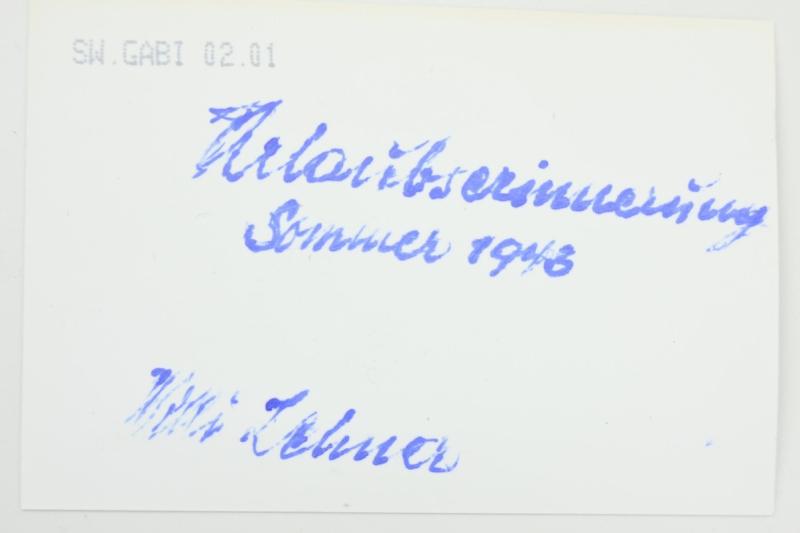 SW.GABI 02.01
Urlaubserinnerung
Sommer 1943
Willi